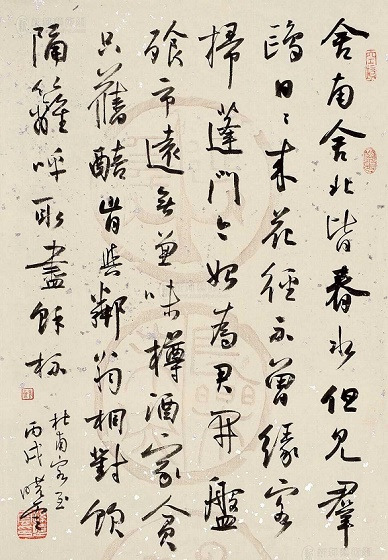 舍南舍北皆春水但見羣
鷗日〻來花徑不曾緣客
掃蓬門今始為君開盤
飧市遠無兼味樽酒家貧
只舊醅肯與鄰翁相對飲
隔籬呼取盡餘杯
杜甫客至
丙戌